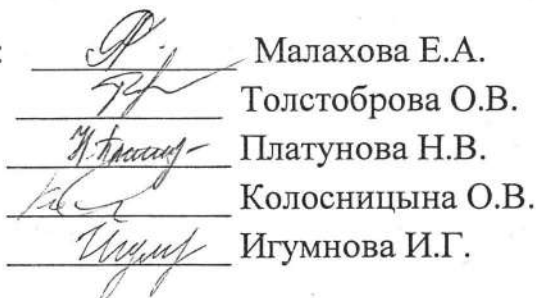 : Малахова Е.А.
Толстоброва О.В.
Платунова Н.В.
Колосницына О.В.
Игумнова И.Г.